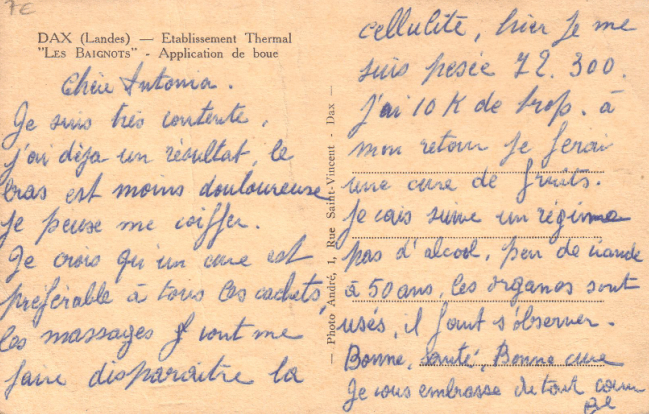 7E
DAX (Landes) — Etablissement Thermal
"LES BAIGNOTS" - Application de boue
Chère Antonia.
Je suis très contente,
j'ai déja un résultat, le
bras est moins douloureuse
je peuse me coiffer.
Je crois qu'un cure est
préférable à tous les cachets,
les massages vont me
faire disparaitre la
— Photo André, 1, Rue Saint-Vincent - Dax —
cellulite, hier je me
suis pesée 72.300.
J'ai 10 K de trop. à
mon retour je ferai
une cure de fruits.
je vais suivre un régime
pas d'alcool, peu de viande
à 50 ans, les organes sont
usés, il faut s'observer.
Bonne santé, Bonne cure
Je vous embrasse de tout cœur